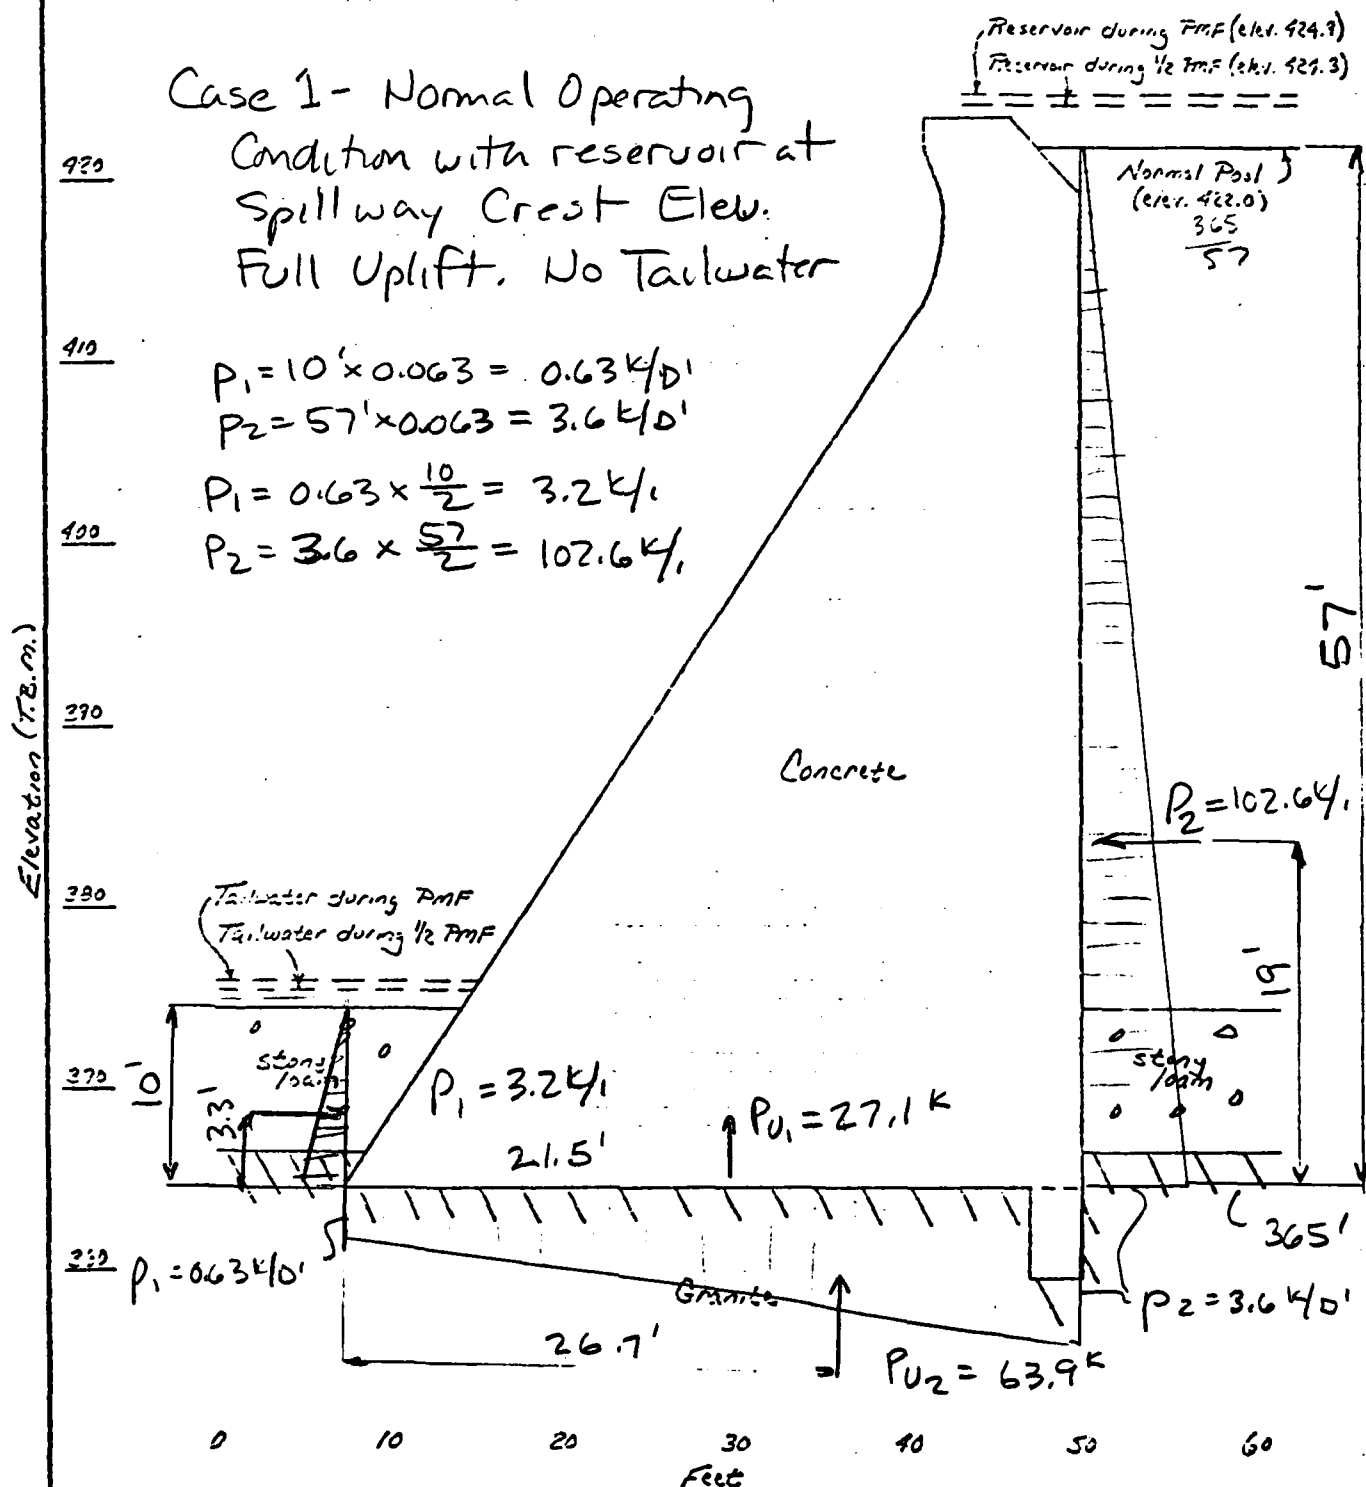 Reservoir during PMF (elev. 424.9)
Reservoir during 1/2 PMF (elev. 424.3)
Case 1 - Normal Operating
Condition with reservoir at
Spillway Crest Elev.
Full Uplift. No Tailwater
Normal Pool
(elev. 422.0)
365
57
420
410
400
390
380
370
360
Elevation (T.B.M.)
P₁ = 10' x 0.063 = 0.63 K/□'
P₂ = 57' x 0.063 = 3.6 K/□'
P₁ = 0.63 x 10/2 = 3.2 K/'
P₂ = 3.6 x 57/2 = 102.6 K/'
57'
Concrete
P₂ = 102.6 K/'
19'
Tailwater during PMF
Tailwater during 1/2 PMF
10'
3.3'
stony
loam
P₁ = 3.2 K/'
21.5'
PU₁ = 27.1 K
stony
loam
365'
P₁ = 0.63 K/□'
Granite
P₂ = 3.6 K/□'
26.7'
PU₂ = 63.9 K
0 10 20 30 40 50 60
Feet